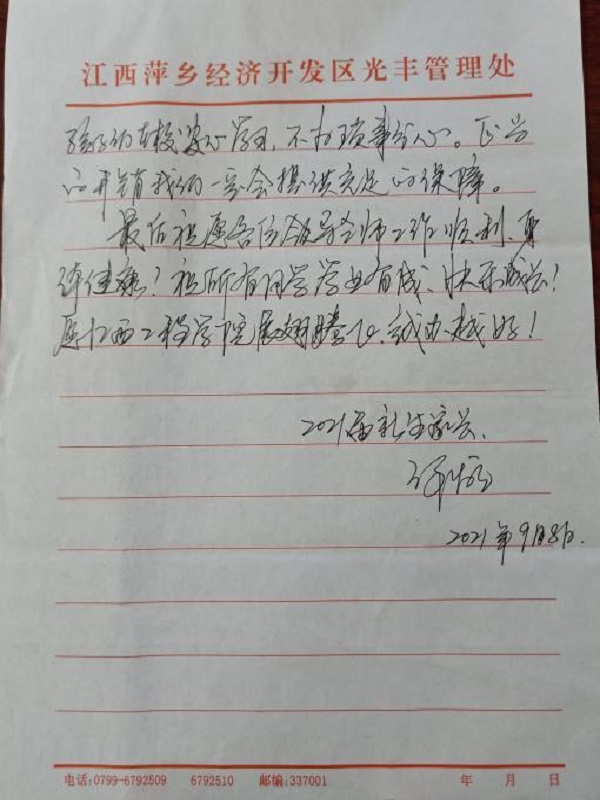 江西萍乡经济开发区光丰管理处
孩子们在校安心学习，不为琐事分心。正当
的开销我们一定会提供充足的保障。
最后祝愿各位领导老师工作顺利、身
体健康！祝所有同学学业有成、快乐成长！
愿江西工程学院展翅腾飞、越办越好！
2021届新生家长、
2021年9月8日.
电话:0799-6792509 6792510 邮编:337001 年 月 日